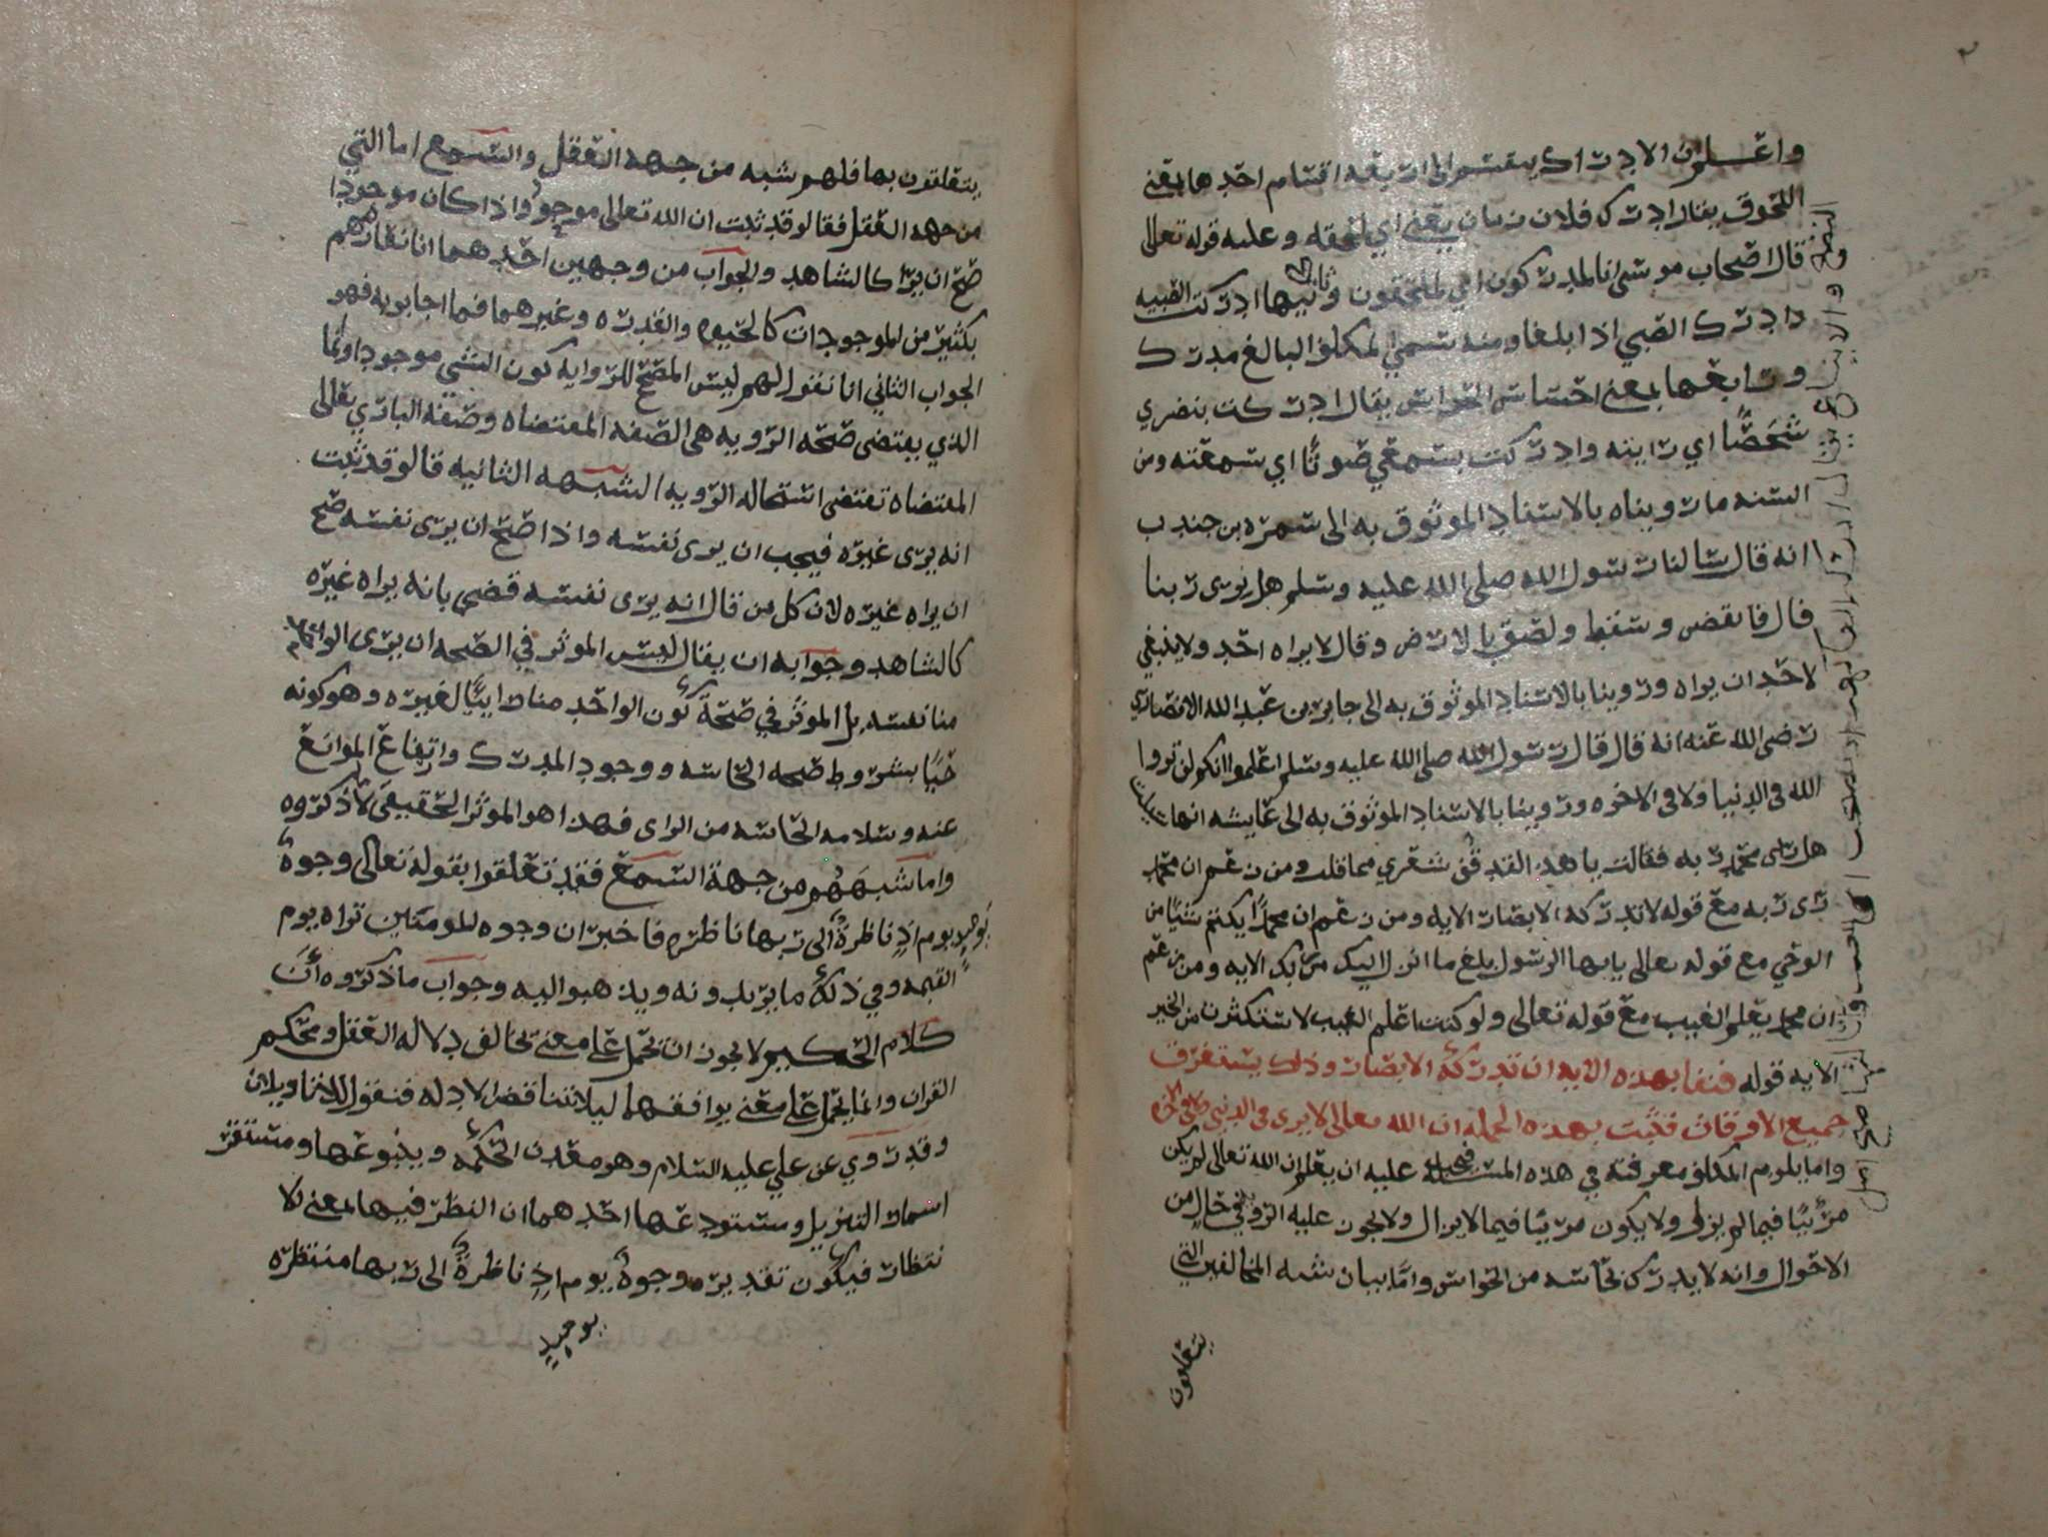 واعلم ان الادراك ينقسم الى اربعة اقسام احدها بمعنى
اللحوق يقال ادرك فلان زمان يعني اي لحقه وعليه قوله تعالى
قال اصحاب موسى انا لمدركون اي لملحقون وثانيها ادركت
وادرك الصبي اذا بلغا ومنه سمي المكلف البالغ مدرك
ورابعها بمعنى احساس الحواس يقال ادركت ببصري
شخصًا اي رايته وادركت بسمعي صوتًا اي سمعته ومن
السنه ما رويناه بالاسناد الموثوق به الى سمره بن جندب
انه قال سالنا رسول الله صلى الله عليه وسلم هل نرى ربنا
قال فانتفض وسقط ولصق بالارض وقال لا يراه احد ولا ينبغي
لاحد ان يراه وروينا بالاسناد الموثوق به الى جابر بن عبد الله الانصاري
رضي الله عنه انه قال قال رسول الله صلى الله عليه وسلم اعلموا انكم لن تروا
الله في الدنيا ولا في الاخره وروينا بالاسناد الموثوق به الى عايشه انها سيلت
هل راى محمد ربه فقالت يا هذا لقد قف شعري مما قلت ومن زعم ان محمد
راى ربه مع قوله لا تدركه الابصار الايه ومن زعم ان محمدًا يكتم شيًا من
الوحي مع قوله تعالى يايها الرسول بلغ ما انزل اليك من ربك الايه ومن زعم
ان محمد يعلم الغيب مع قوله تعالى ولو كنت اعلم الغيب لاستكثرت من الخير
الايه قوله فنفا بهذه الايه ان تدركه الابصار وذلك يستغرق
جميع الاوقات فثبت بهذه الجمله ان الله تعالى لا يرى في الدنيا ولا في الاخره
واما يلزم المكلف معرفته في هذه المسئله فيجب عليه ان يعلم ان الله تعالى لم يكن
مرئيًا فيما لم يزل ولا يكون مرئيًا فيما لا يزال ولا يجوز عليه الرؤيه في حال من
الاحوال وانه لا يدرك بحاسه من الحواس واما بيان شبه المخالفين التي
يتعلقون
يتعلقون بها فلهم شبه من جهه العقل والسمع اما التي
من جهه العقل فقالو قد ثبت ان الله تعالى موجودٌ واذا كان موجودا
صح ان يرا كالشاهد والجواب من وجهين احدهما انا نعارضهم
بكثير من الموجودات كالحيوه والقدره وغيرهما فما اجابو به فهو
الجواب الثاني انا نقول لهم ليس المصحح للرؤايه كون الشي موجودا وانما
الذي يقتضي صحه الرويه هي الصفه المقتضاه وصفه الباري تعالى
المقتضاه تقتضي استحاله الرويه الشبهه الثانيه قالو قد ثبت
انه يرى غيره فيجب ان يرى نفسه واذا صح ان يرى نفسه صح
ان يراه غيره لان كل من قال انه يرى نفسه قضى بانه يراه غيره
كالشاهد وجوابه ان يقال ليس الموثر في الصحه ان يرى الواحد
منا نفسه بل الموثر في صحة كون الواحد منا رائيًا لغيره وهو كونه
حيًا بشروط صحه الحاسه ووجود المدرك وارتفاع الموانع
عنه وسلامه الحاسه من الراى فهذا هو الموثر الحقيقي لا ما ذكروه
واما شبههم من جهة السمع فقد تعلقوا بقوله تعالى وجوهٌ
يوم اذٍ ناظرةٌ الى ربها ناظره فاخبر ان وجوه المومنين تراه يوم
القيمه وفي ذلك ما يريدونه ويذهبوا اليه وجواب ما ذكروه أن
كلام الحكيم لا يجوز ان يحمل على معنى يخالف دلاله العقل ومحكم
القران وانما يحمل على معنى يوافقهما ليلا تتناقض الادله فنقول للايه تاويلان
وقد روي عن علي عليه السلام وهو معدن الحكمه وينبوعها ومستقر
اسرار التنزيل ومستودعها احدهما ان النظر فيها بمعنى الا
نتظار فيكون تقديره وجوهٌ يوم اذٍ ناظرةٌ الى ربها منتظره
يوميذٍ